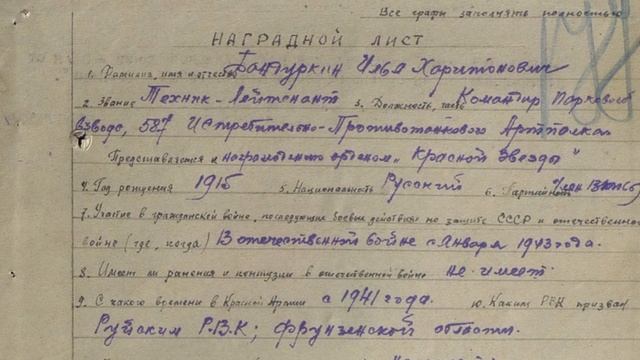 Все графы заполнять полностью
НАГРАДНОЙ ЛИСТ
1. Фамилия, имя и отчество Бантуркин Илья Харитонович
2. Звание Техник-Лейтенант 3. Должность, часть Командир Паркового
взвода, 587 Истребительно-Противотанкового Артполка
Представляется к награждению орденом „Красной Звезды"
4. Год рождения 1915 5. Национальность Русский 6. Партийность член ВКП(б)
7. Участие в гражданской войне, последующих боевых действиях по защите СССР и отечественной
войне (где, когда) В отечественной войне с Января 1943 года.
8. Имеет ли ранения и контузии в отечественной войне не имеет.
9. С какого времени в Красной Армии с 1941 года. 10. Каким РВК призван
Руйским Р.В.К; Фрунзенской области.